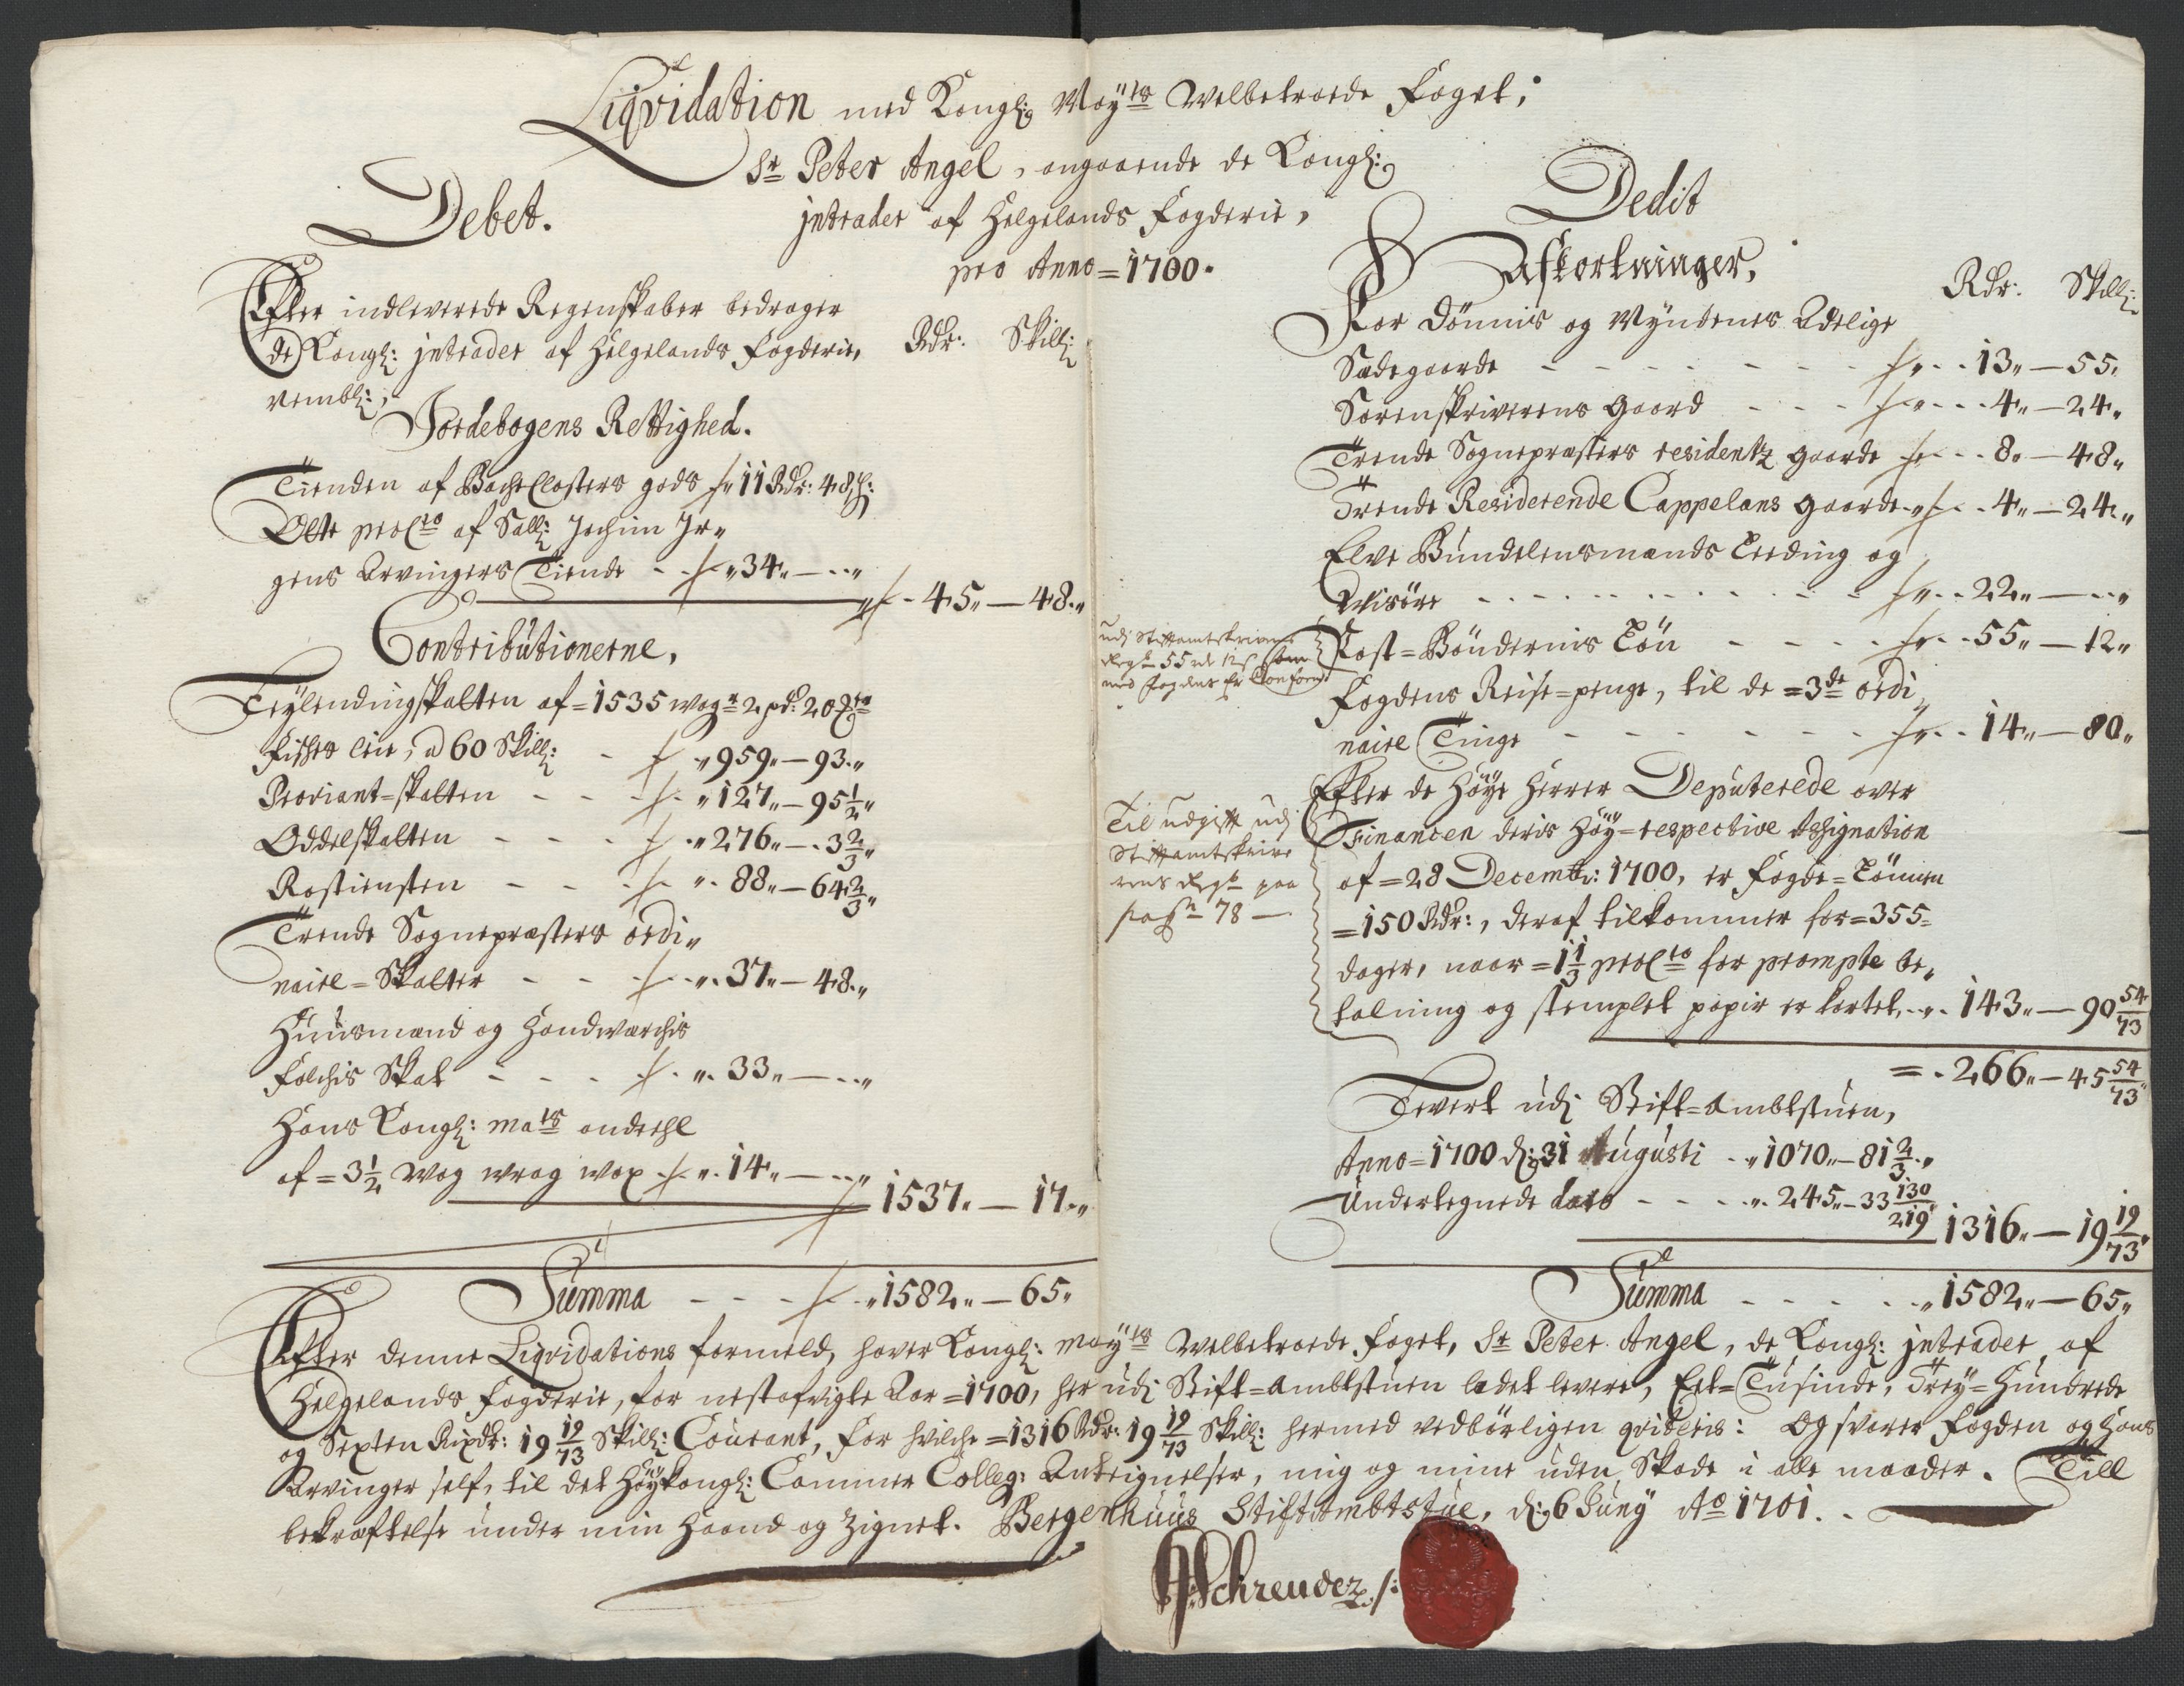 Liqvidation med Kongl: May:ts Welbetroede Foget,
Sr Peter Angel, angaaende de Kongl:
jntrader af Helgelands Fogderie,
pro Anno = 1700.
Debet.
Efter indleverede Regenskaber bedrager
de Kongl: jntrader af Helgelands Fogderie,
nembl:
Rdr: Skill:
Jordebogens Rettighed.
Tienden af Bache Closters gods 11 Rdr: 48 s:
Otte pro Cto af Sall: Jochim Jr„
gens Arvingers Tiende - - „ 34„ — - „
„ - 45„ — 48„
Contributionerne,
Leylendingskatten af = 1535 wog: 2 pd: 20
Fiskes leie, a 60 Skill: - „ 959„ — 93„
Proviant=skatten - - - „ 127„ — 95 1/2„
Oddelskatten - - - - „ 276„ — 3 2/3„
Rostiensten - - - „ 88„ — 64 2/3„
Trende Sognepræsters ordi„
naire = Skatter - - - „ 37„ — 48„
Huusmænd og Handwærchs
Folchis Skat - - - - „ 33„ — - „
Hans Kongl: Mats andeehl
af = 3 1/2 Wog wrag wox „ 14„ — - „
1537„ — 17„
Summa - - - - „ 1582„ — 65„
Dedit
Afkortninger,
Rdr: Skill:
For Dönnis og Myndenes Adelige
Sædegaarde - - - - - - „ - - 13„ — 55„
Sorenskriverens gaard - - - „ - - 4„ — 24„
Trende Sognepræsters residentz gaarde - - 8„ — 48„
Trende Residerende Cappelans gaarde „ - 4„ — 24„
Elve Bundelensmænds Leeding og
Wisöre - - - - - - - - „ - - 22„ — - „
udj Stiftamtskriver
Regsk 55 rdr 12 s som
med fogdens er Conform
Post=Böndernis Lön - - - - - 55„ — 12„
Fogdens Reise=penge, til de = 3de ordi„
naire Tinge - - - - - - - „ - - 14„ — 80„
Til udgift udj
Stiftamtskrive
rens Regsk paa
pag: 78 —
Efter de Höye Herrer Deputerede over
Financen deris Höy=respective dessignation
af = 28 Decembr: 1700, er Fogde=Lönnen
= 150 Rdr:, deraf tilkommer for = 355 =
dager, naar = 1 1/3 pro Cto for prompte be„
talning og stemplet papir er kortet, - „ - 143„ — 90 54/73
= - 266„ — 45 54/73„
Levert udj Stift=Ambtstuen,
Anno = 1700 d: 31 Augusti - „ 1070„ — 81 2/3„
Undertegnede dato - - - - „ 245„ — 33 130/219„
1316„ — 19 19/73„
Summa - - - - - „ 1582„ — 65„
Efter denne Liqvidations formeld, haver Kongl: May:ts Welbetroede Foget, Sr Peter Angel, de Kongl: jntrader af
Helgelands Fogderie, for nestafvigte Aar = 1700, her udj Stift=Ambtstuen ladet levere, Eet=Tusinde, Trey=Hundrede
og Sexten Rixdr: 19 19/73 Skill: Courant, For hvilche = 1316 Rdr: 19 19/73 Skill: hermed vedbörligen qviteris: Og svarer Fogden og Hans
Arvinger self, til det Höykongl: Cammer Colleg: Anteignelser, mig og mine uden Skade i alle maader. Till
bekræftelse under min Haand og Zignet. Bergenhuus Stiftambtstue, d: 6 Juny Ao 1701.
Schreuder